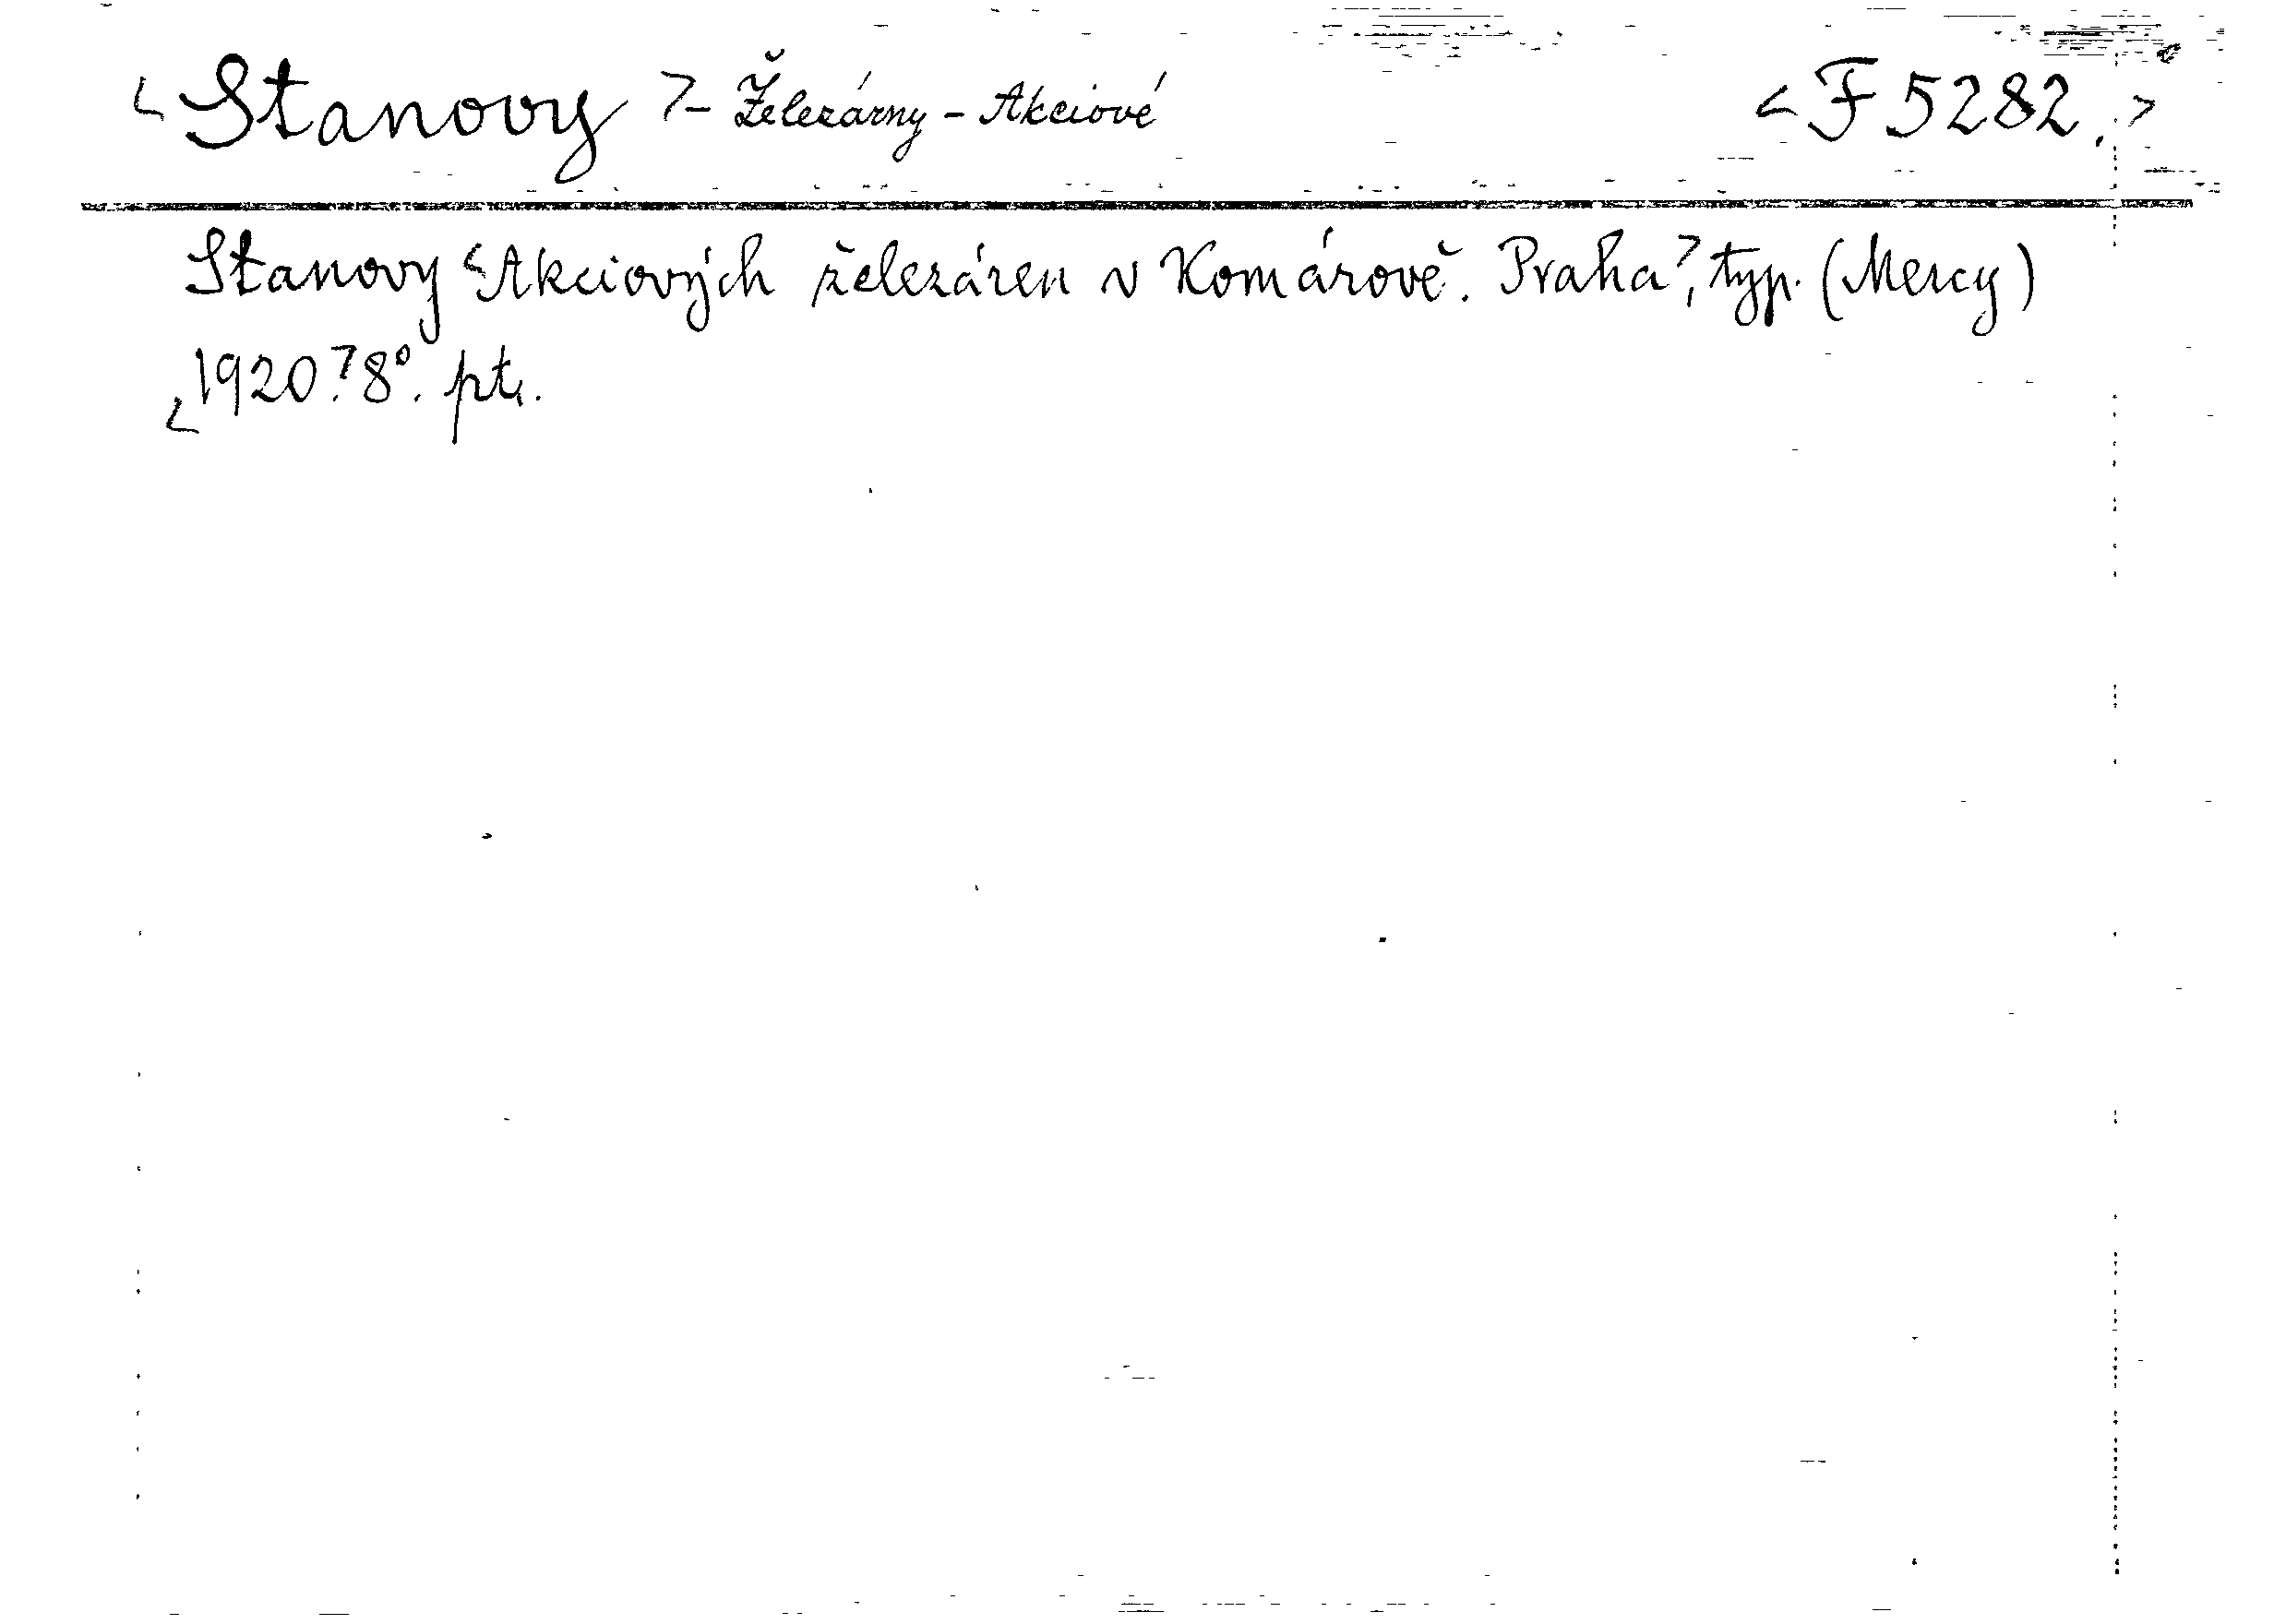 <Stanovy >- Železárny - Akciové <F 5282.>
Stanovy <Akciových železáren v Komárově. Praha>, typ. (Mercy)
<1920.>8°. pt.